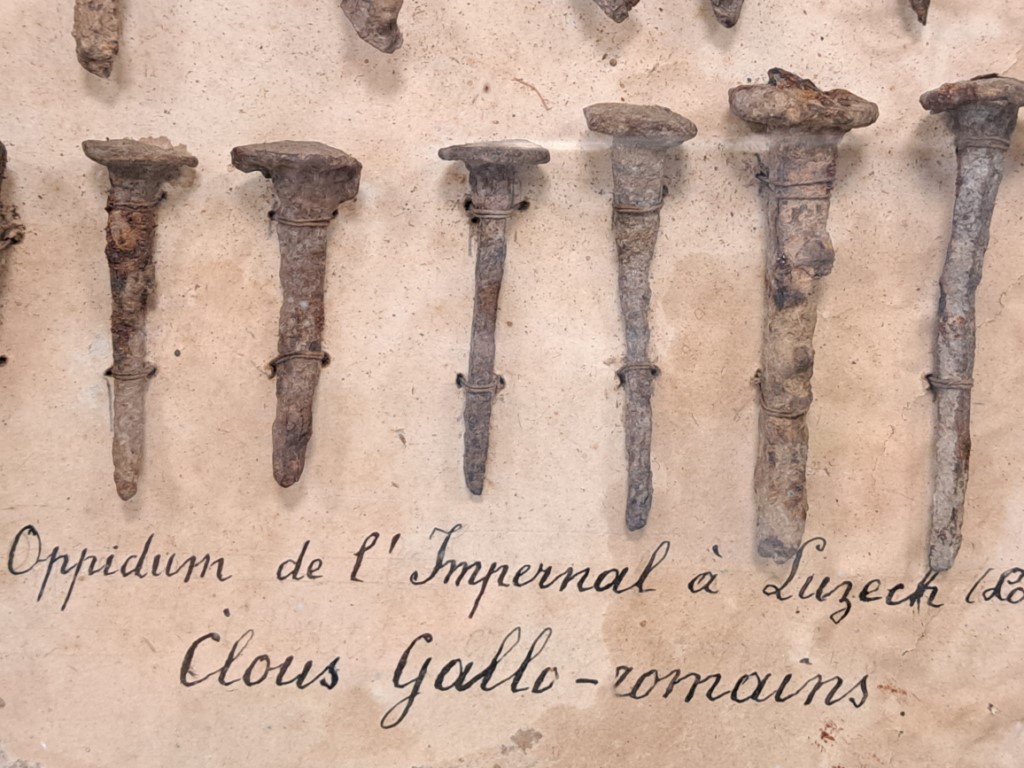 Oppidum de l'Impernal à Luzech (Lo
Clous Gallo-romains